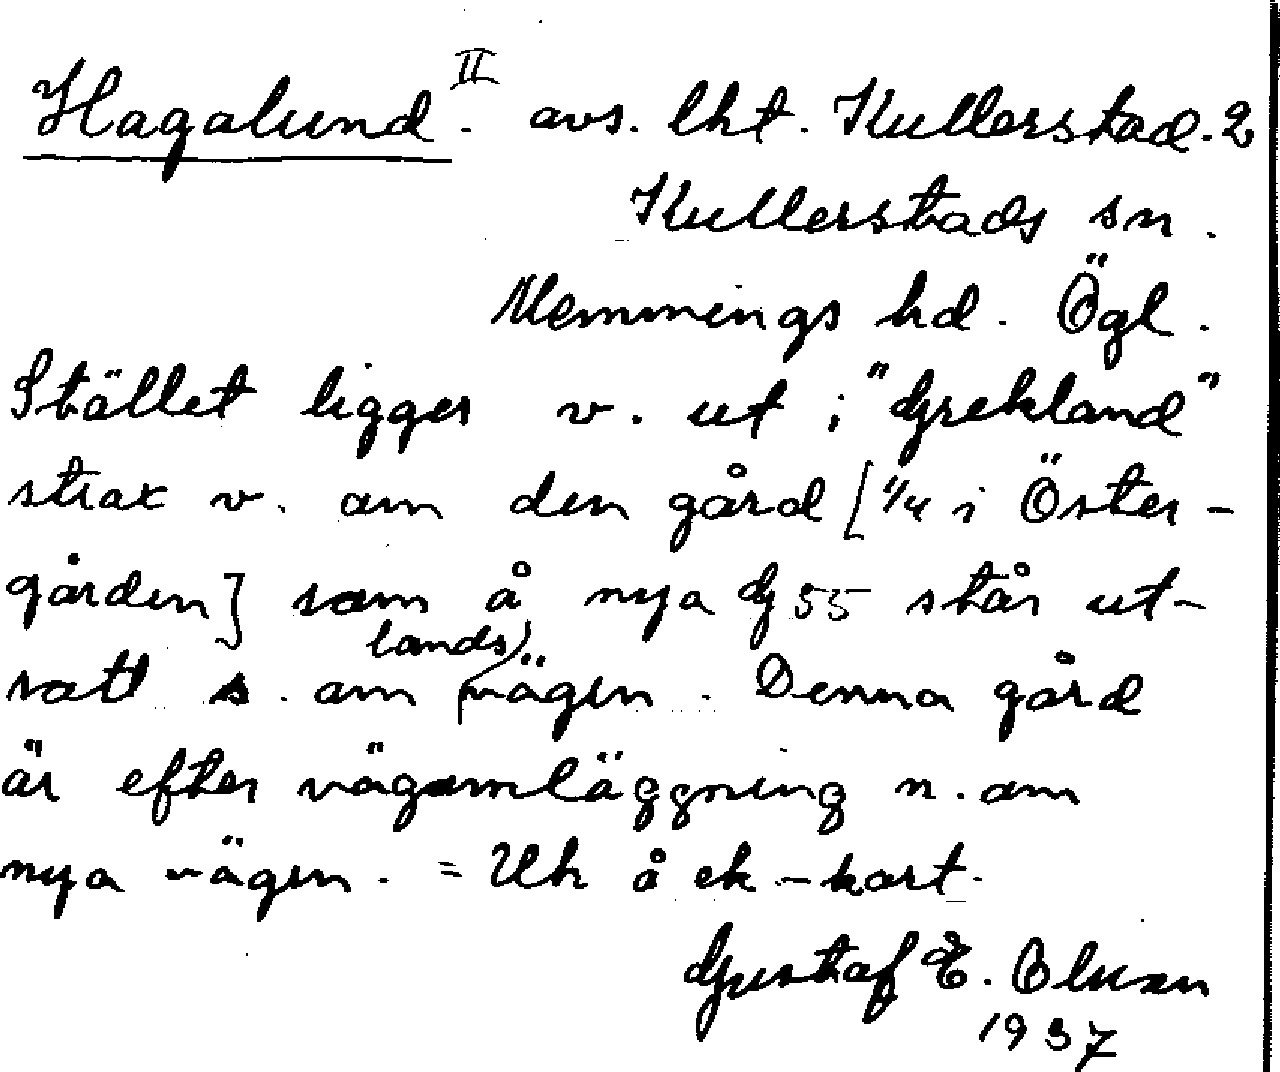 Hagalund II. avs. lht. Kullerstad. 2
Kullerstads sn.
Memmings hd. Ögl.
Stället ligger v. ut i "Grekland"
strax v. om den gård [1/4 i Öster-
gården] som å nya G 55 står ut-
satt s. om landsvägen. Denna gård
är efter vägomläggning n. om
nya vägen. = Uh å ek-kart.
Gustaf E. Olsson
1937